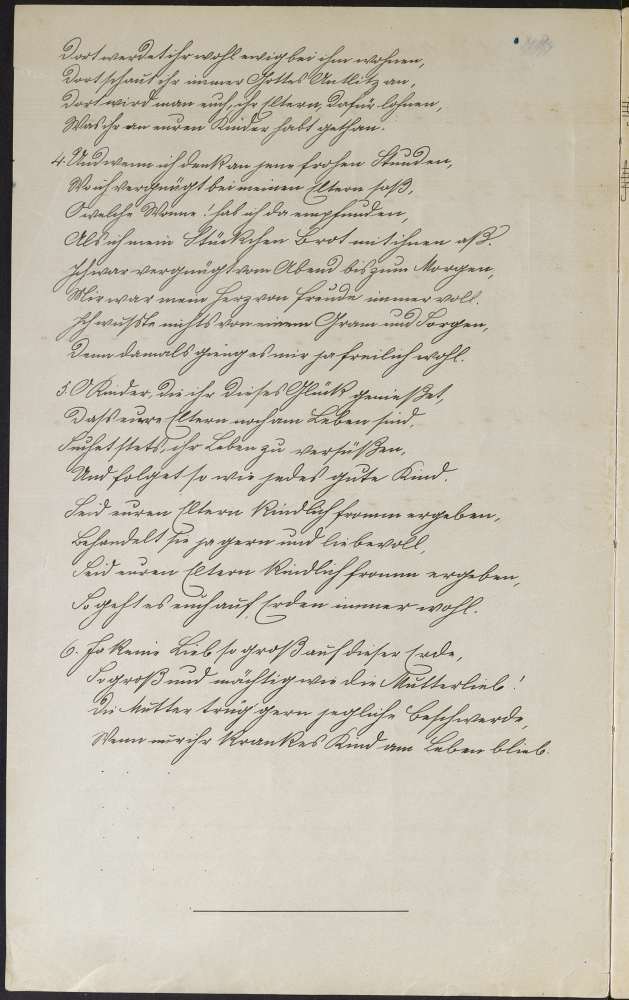 Dort werdet ihr wohl ewig bei ihm wohnen,
Dort schaut ihr immer Gottes Antlitz an,
Dort wird man euch, ihr Eltern, dafür lohnen,
Was ihr an euren Kinder habt gethan.
4. Und wenn ich denk an jene frohen Stunden,
Wo ich vergnügt bei meinen Eltern saß,
O welche Wonne! hab ich da empfunden,
Als ich mein Stückchen Brot mit ihnen aß.
Ich war vergnügt vom Abend bis zum Morgen,
Mir war mein Herz von Freude immer voll.
Ich wußte nichts von einem Gram und Sorgen,
Denn damals gieng es mir ja freilich wohl.
5. O Kinder, die ihr dieses Glück genießet,
Daß eure Eltern noch am Leben sind,
Suchet stets, ihr Leben zu versüßen,
Und folget so wie jedes gute Kind.
Seid euren Eltern kindlich fromm ergeben,
Behandelt sie ja gern und liebevoll,
Seid euren Eltern kindlich fromm ergeben,
So geht es euch auf Erden immer wohl.
6. Ja keine Lieb so groß auf dieser Erde,
So groß und mächtig wie die Mutterlieb!
Die Mutter trüg gern jegliche Beschwerde,
Wenn nur ihr krankes Kind am Leben blieb.